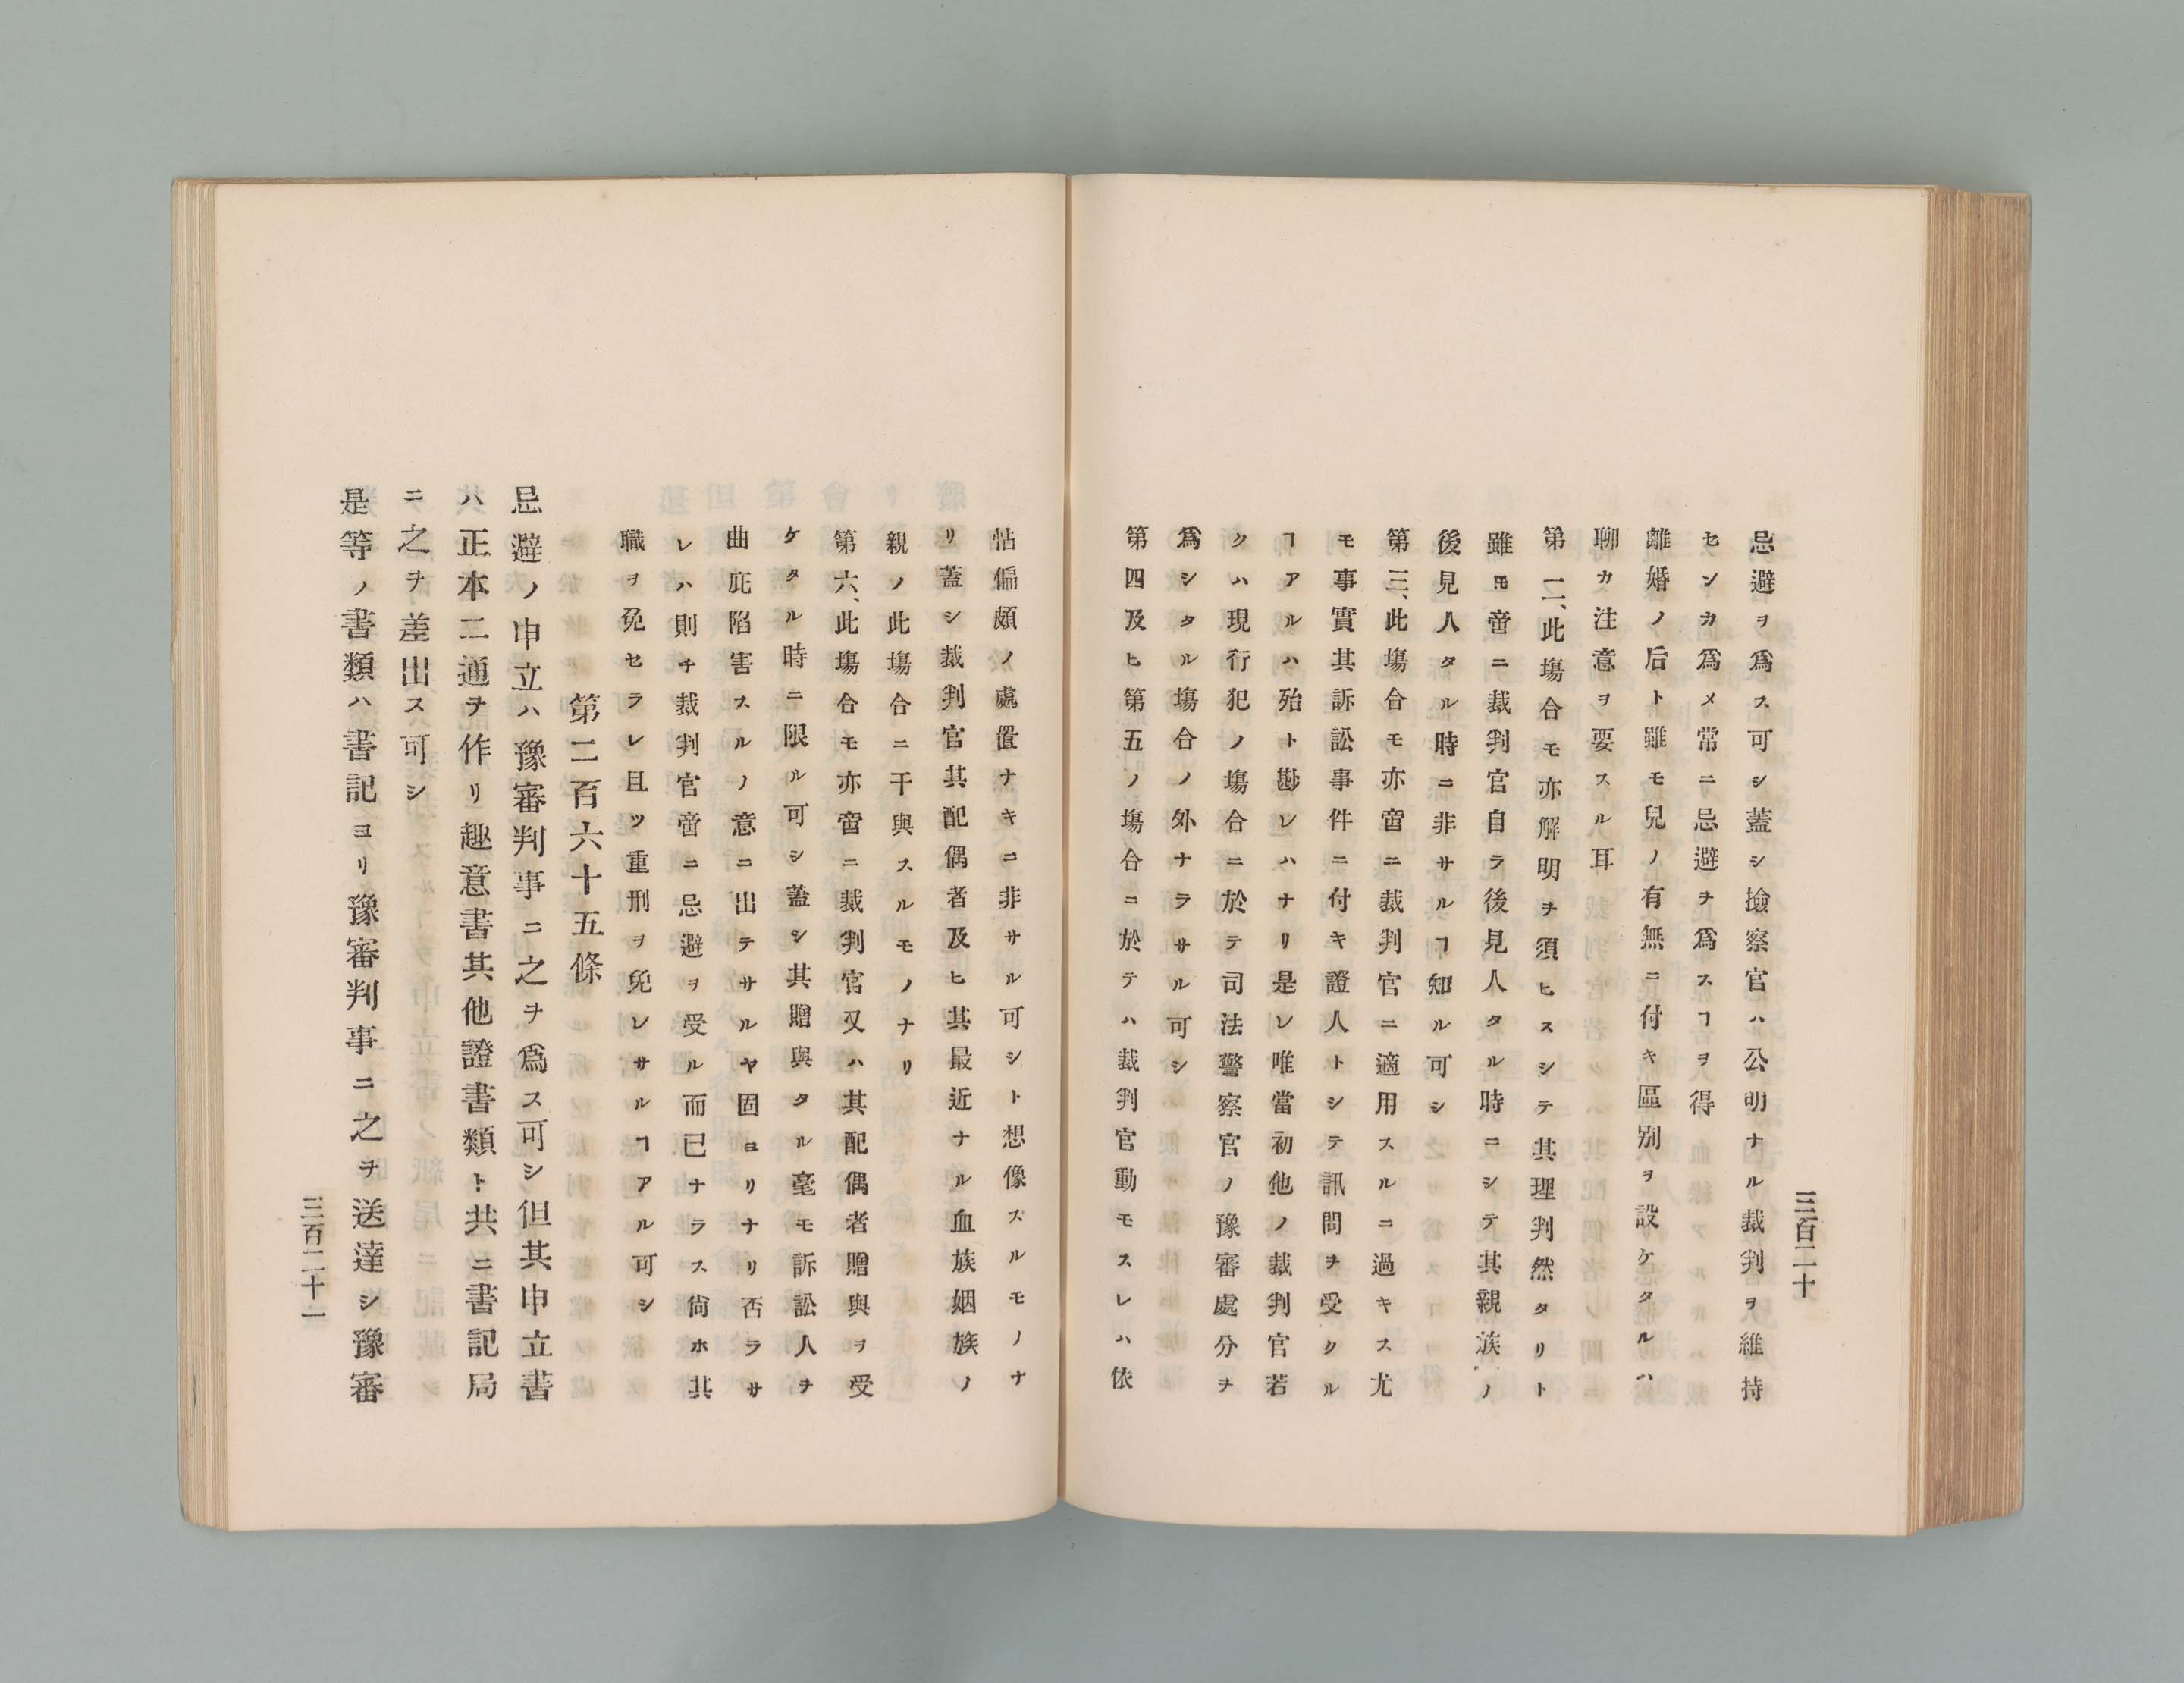 三百二十
忌避ヲ爲ス可シ蓋シ撿察官ハ公明ナル裁判ヲ維持
センカ爲メ常ニ忌避ヲ爲スヿヲ得
離婚ノ后ト雖モ兒ノ有無ニ付キ區別ヲ設ケタルハ
聊カ注意ヲ要スル耳
第二、此塲合モ亦解明ヲ須ヒスシテ其理判然タリト
雖𪜈啻ニ裁判官自ラ後見人タル時ニシテ其親族ノ
後見人タル時ニ非サルヿ知ル可シ
第三、此塲合モ亦啻ニ裁判官ニ適用スルニ過キス尤
モ事實其訴訟事件ニ付キ證人トシテ訊問ヲ受クル
ヿアルハ殆ト尠レハナリ是レ唯當初他ノ裁判官若
クハ現行犯ノ塲合ニ於テ司法警察官ノ豫審處分ヲ
爲シタル塲合ノ外ナラサル可シ
第四及ヒ第五ノ塲合ニ於テハ裁判官動モスレハ依
怙偏頗ノ處置ナキニ非サル可シト想像スルモノナ
リ蓋シ裁判官其配偶者及ヒ其最近ナル血族姻族ノ
親ノ此塲合ニ干與スルモノナリ
第六、此塲合モ亦啻ニ裁判官又ハ其配偶者贈與ヲ受
ケタル時ニ限ル可シ蓋シ其贈與タル毫モ訴訟人ヲ
曲庇陷害スルノ意ニ出テサルヤ固ヨリナリ否ラサ
レハ則チ裁判官啻ニ忌避ヲ受ル而已ナラス尙ホ其
職ヲ免セラレ且ツ重刑ヲ免レサルヿアル可シ
第二百六十五條
忌避ノ申立ハ豫審判事ニ之ヲ爲ス可シ但其申立書
ハ正本二通ヲ作リ趣意書其他證書類ト共ニ書記局
ニ之ヲ差出ス可シ
是等ノ書類ハ書記ヨリ豫審判事ニ之ヲ送達シ豫審
三百二十一